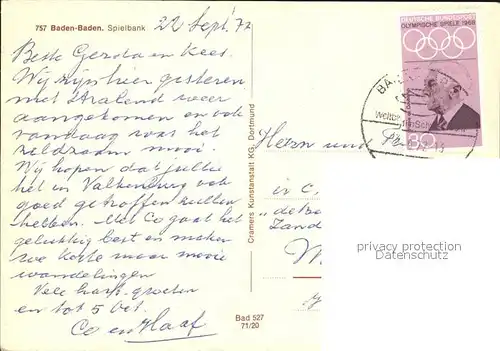 757 Baden-Baden. Spielbank
22 Sept. 72
Beste Gerda en Kees.
Wij zijn hier gisteren
met stralend weer
aangekomen en ook
vandaag was het
zeldzaam mooi.
Wij hopen dat jullie
het in Valkenburg ook
goed getroffen zullen
hebben. Met Co gaat het
gelukkig best en maken
we korte maar mooie
wandelingen
Vele hartl. groeten
en tot 5 Oct.
Co en
Cramers Kunstanstalt KG, Dortmund
Bad 527
71/20
DEUTSCHE BUNDESPOST
OLYMPISCHE SPIELE 1968
30
BA
Herrn und
"de
Zand
privacy protection
Datenschutz